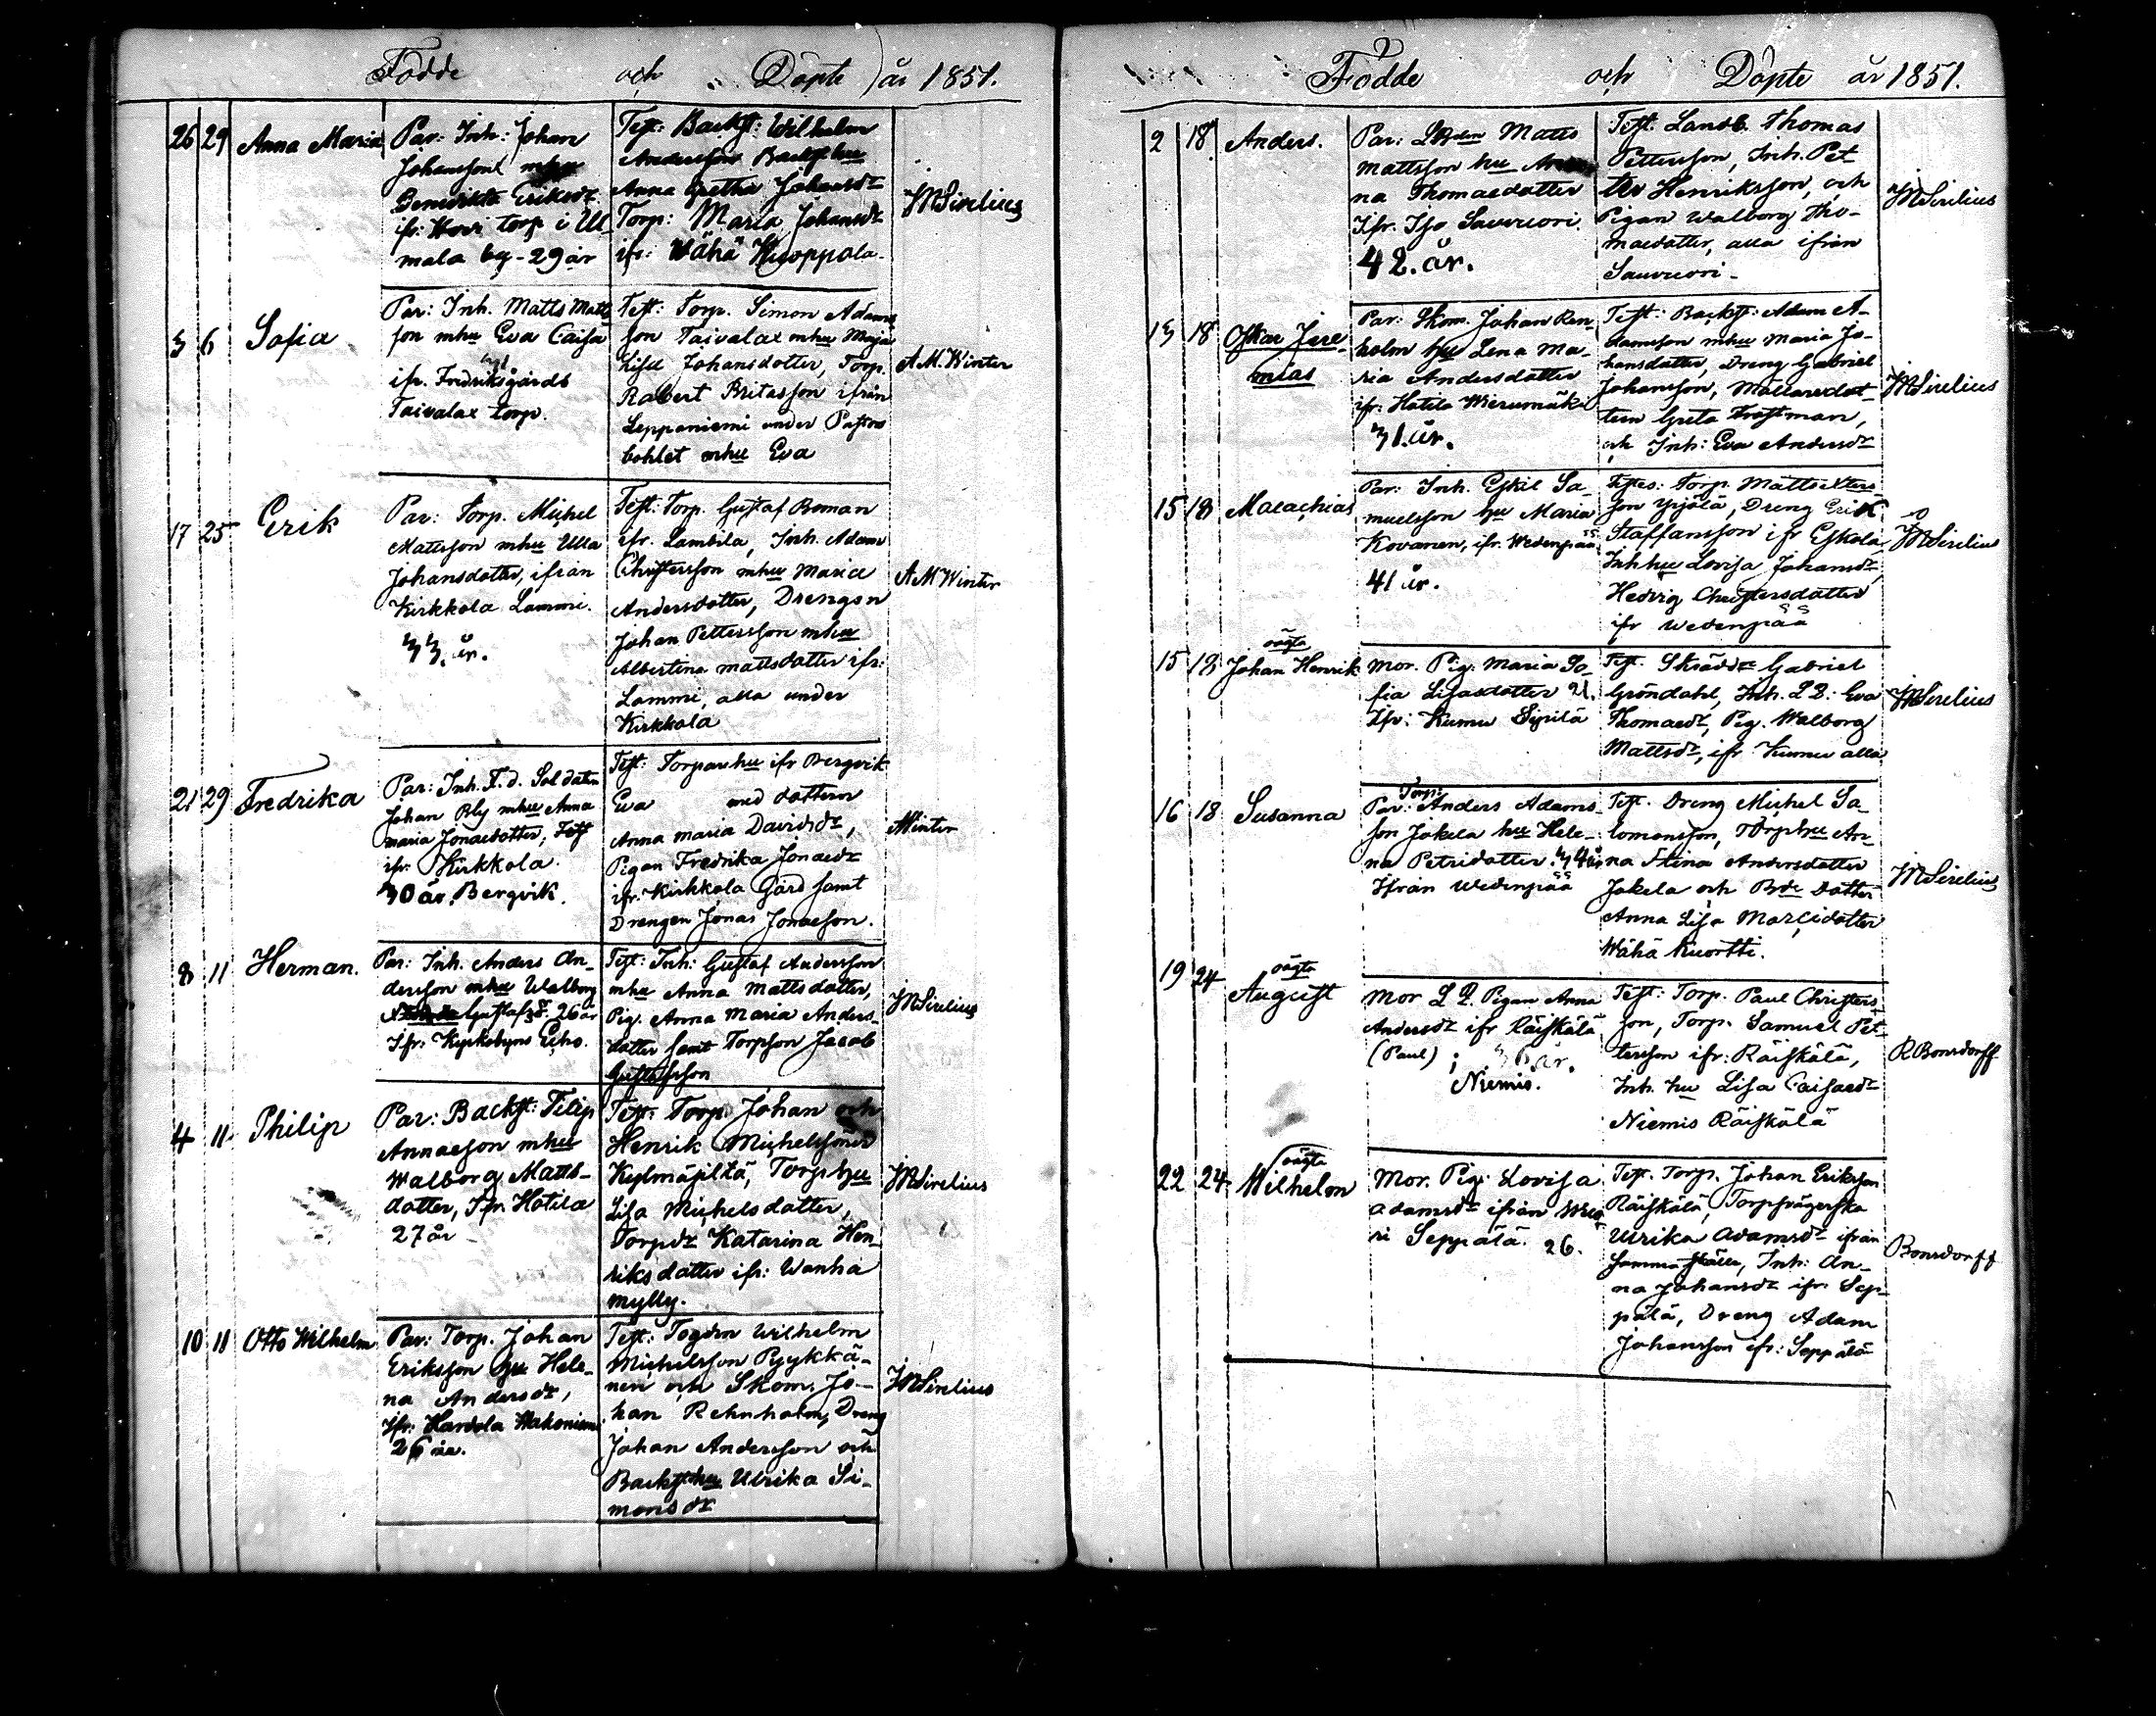 Födde och Döpte år 1851.
26 29 Anna Maria
Par: Inh: Johan
Johansson mhu
Benedikta Eriksdr
ifr: Horr torp i Ul-
mala by - 29 år
Test: Backst: Wilhelm
Andersson Backst hu
Anna Gretha Johansdr
Torp: Maria Johansdr
ifr: Wähä Huoppola
JMSirelius
3 6 Sofia
Par: Inh. Matts Matts
son mhu Eva Caisa
31
ifr. Fredriksgårds
Taivalax torp.
Test: Torp. Simon Adams
son Taivalax mhu Maja
Lisa Johansdotter, Torp.
Robert Britasson ifrån
Leppäniemi under Pastors
bohlet mhu Eva
A.M. Winter
17 25 Erik
Par: Torp. Michel
Mattsson mhu Ulla
Johansdotter, ifrån
Kirkkola Lammi.
33. år.
Test: Torp. Gustaf Boman
ifr. Lambila, Inh. Adam
Christersson mhu Maria
Andersdotter, Drengen
Johan Pettersson mhu
Albertina Mattsdotter ifr:
Lammi, alla under
Kirkkola
A M Winter
21 29 Fredrika
Par: Inh. F.d. Soldaten
Johan Bly mhu Anna
Maria Jonaedotter,
ifr. Kirkkola.
30 år. Bergvik.
Test: Torpare hu ifr Bergvik
Eva med dottern
Anna Maria Davidsdr,
Pigan Fredrika Jonaedr
ifr. Kirkkola Gård samt
Drengen Jonas Jonaeson.
Winter
8 11 Herman.
Par: Inh. Anders An-
dersson mhu Walborg
Gustafsdr. 26 år
Ifr: Kyrkobyns Echo.
Test: Inh: Gustaf Andersson
mhu Anna Mattsdotter,
Pig. Anna Maria Anders-
dotter samt Torpson Jacob
Gustafsson
JMSirelius
4 11 Philip
Par: Backst: Filip
Annaeson mhu
Walborg Matts-
dotter, Ifr. Hotila
27 år
Test: Torp. Johan och
Henrik Michelssöner
Kylmäpiltä, Torp hu
Lisa Michelsdotter,
Torpdr Katarina Hen-
riksdotter ifr: Wanha
mylly.
JMSirelius
10 11 Otto Wilhelm
Par: Torp. Johan
Eriksson hu Hele-
na Andersdr,
ifr: Handola
26 år.
Test: Wilhelm
Michelsson Pyykkä-
nen och Skom. Jo-
han Rehnholm, Dreng
Johan Andersson och
Backst hu Ulrika Si-
monsdr
JMSirelius
Födde och Döpte år 1851.
2 18 Anders.
Par: Matts
Mattsson hu An-
na Thomaedotter
Ifr. Iso Sauvuori.
42. år.
Test. Landb. Thomas
Pettersson, Inh. Pet
ter Henriksson, och
Pigan Walborg Tho-
maedotter, alla ifrån
Sauvuori-
JMSirelius
13 18 Oskar Jere-
mias
Par: Skom. Johan Ren-
holm hu Lena Ma-
ria Andersdotter
ifr: Hotila Wierumäki
31. år.
Test: Backst: Adam A-
damsson mhu Maria Jo-
hansdotter, Dreng Gabriel
Johansson, Mållaredot-
tern Greta Trastman,
och Inh: Eva Andersdr
JMSirelius
15 18 Malachias
Par: Inh. Eskil Sa-
muelsson hu Maria
Kovanen, ifr. Wedenpää
41 år.
Testes: Torp. Matts
son Yrjölä, Dreng Erik
Staffansson ifr Eskola
Inh hu Lovisa Johansdr,
Hedvig Christersdotter
ifr Wedenpää
JMSirelius
15 18 oägta
Johan Henrik
Mor. Pig. Maria So-
fia Lisasdotter 21.
Ifr: Kumu Sipilä
Test. Skrädd. Gabriel
Gröndahl, Inh. L.D: Eva
Thomaedr, Pig. Walborg
Mattsdr, ifr Kumu alla
JMSirelius
16 18 Susanna
Torp:
Par: Anders Adams-
son Jokela hu Hele-
na Petridotter. 34 år.
Ifrån Wedenpää
Test. Dreng Michel Sa-
lomonsson, Torp hu An-
na Stina Andersdotter
Jokela och Bde Dotter
Anna Lisa Marcidotter
Wähä Kuortti.
JMSirelius
19 24 oägta
August
Mor L.D. Pigan Anna
Andersdr ifr Räiskälä
(Paul);
Niemis.
Test: Torp. Paul Christers
son, Torp. Samuel Pet-
tersson ifr: Räiskälä,
Inh. hu Lisa Caisaedr
Niemis Räiskälä
R Bonsdorff
22 24 oägta
Wilhelm
Mor. Pig: Lovisa
Adamsdr ifrån
Seppälä. 26.
Test. Torp. Johan Eriksson
Räiskälä, Torpsvägerska
Ulrika Adamsdr ifrån
samma ställe, Inh: An-
na Johansdr ifr. Sep-
pälä, Dreng Adam
Johansson ifr: Seppälä
Bonsdorff